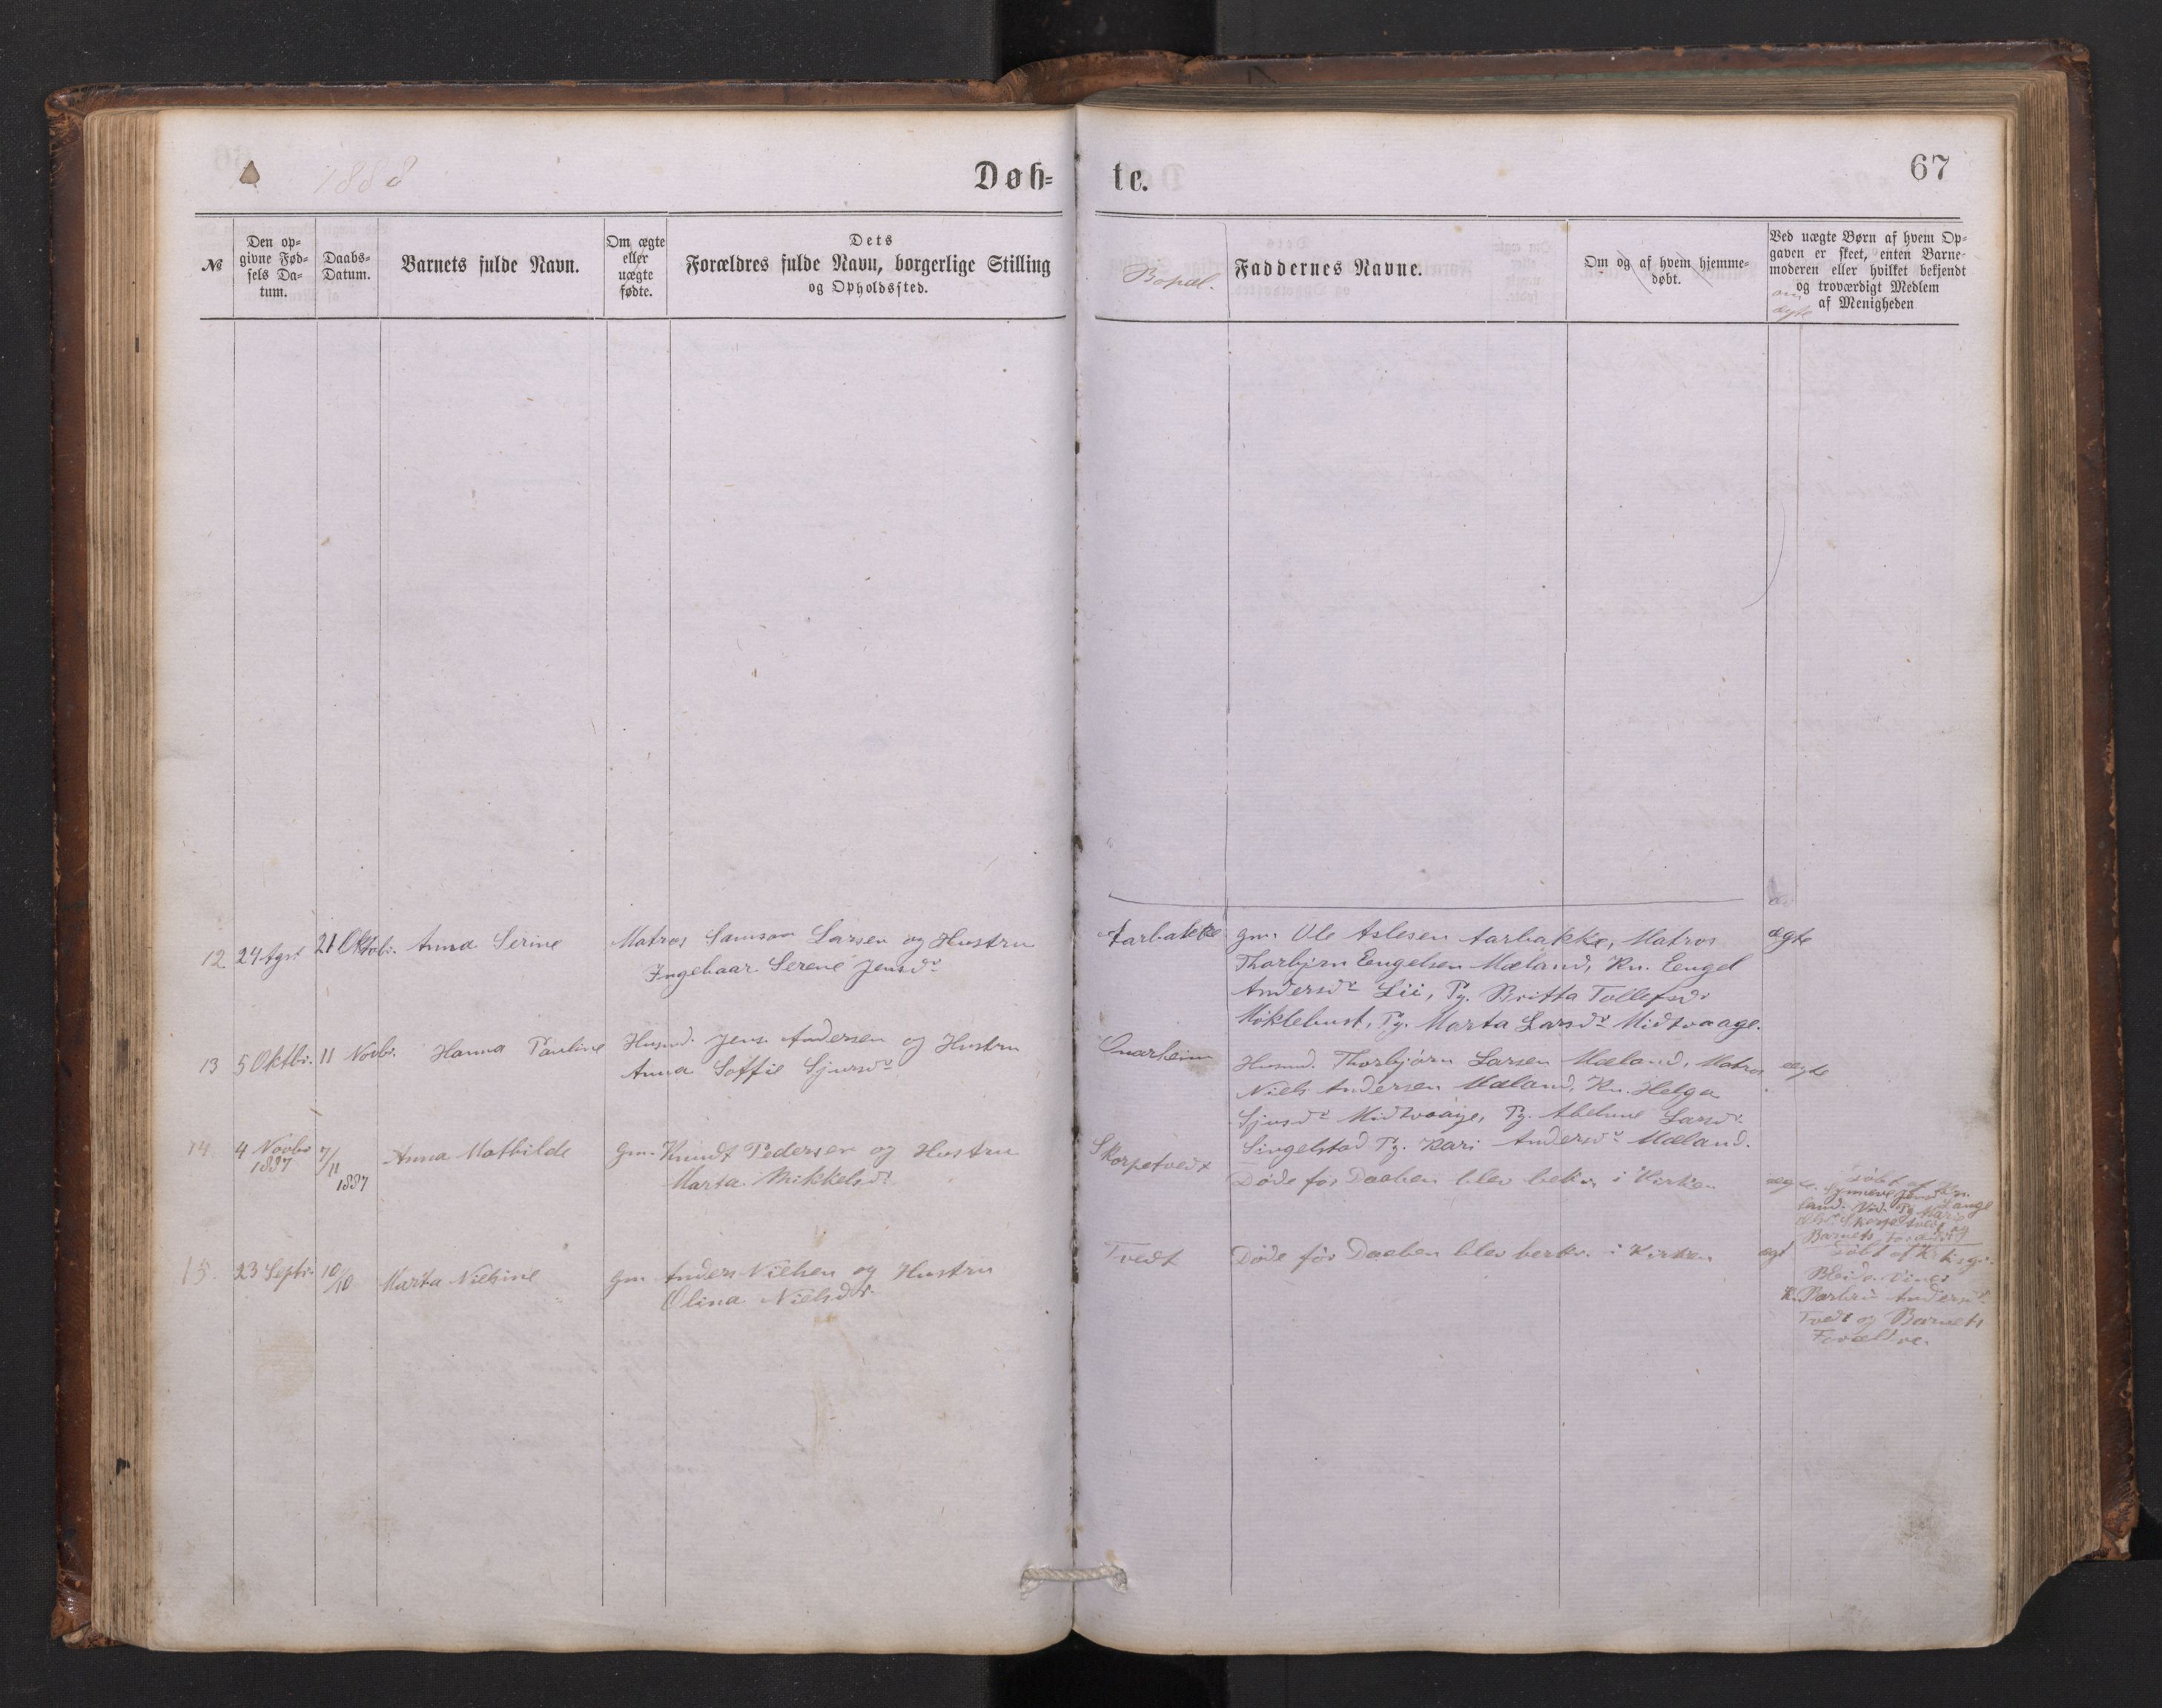 1888
Døb=
te.
67
№
Den op=
givne Fød=
sels Da=
tum.
Daabs=
Datum.
Barnets fulde Navn.
Om ægte
eller
uægte
fødte.
Dets
Forældres fulde Navn, borgerlige Stilling
og Opholdssted.
Bopæl.
Faddernes Navne.
Om og af hvem hjemme=
døbt.
Ved uægte Børn af hvem Op=
gaven er skeet, enten Barne=
moderen eller hvilket bekjendt
og troværdigt Medlem
af Menigheden
om
ægte
12 24 Agst 21 Oktobr. Anna Serine Matros Samson Larsen og Hustru
Ingebaar Serene Jensdr
Aarbakke gm. Ole Aslesen Aarbakke, Matros ægte
Thorbjrn Eengelsen Mæland, Kn. Eengel
Andersdr Lii, Pg. Britta Tollefsdr
Møklebust, Pg. Marta Larsdr Midtvaage.
13 5 Oktbr. 11 Novbr. Hanna Pauline Husmd. Jens Andersen og Hustru
Anna Soffie Sjursdr
Onarheim Husmd. Thorbjørn Larsen Mæland, Matros ægte
Niels Andersen Mæland, Kn. Helga
Sjursdr Midtvaage, Pg. Larsdr.
Singelstad Pg. Kari Andersdr Mæland.
14 4 Novbr 7/11 Anna Mathilde gm. Knudt Pedersen og Hustru
1887 1887 Marta Mikkelsdr
Skorpetvedt Døde før Daaben blev bekr. i Kirken ægte
Døbt af
Barnets
15. 23 Septr. 10/10 Marta Nielsine gm Anders Nielsen og Hustru
Olina Nielsdr.
Tvedt Døde før Daaben blev bekr. i Kirken ægt
Døbt af
Andersdr
Tvedt og Barnets
Forældre.